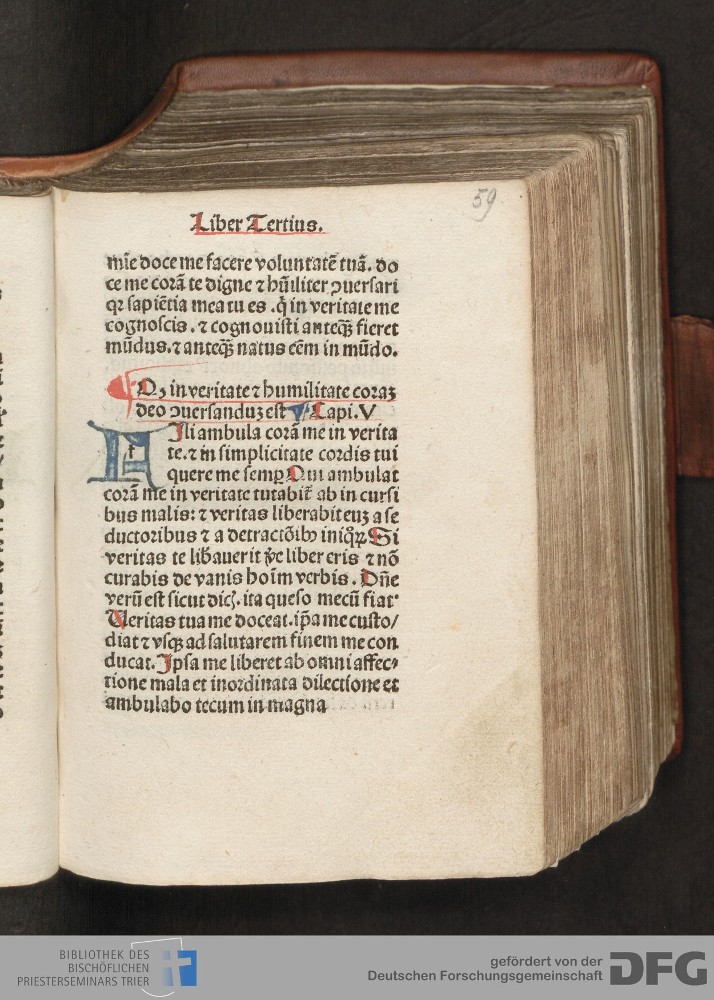 59
Liber Tertius.
mīe doce me facere voluntatē tuā. do
ce me corā te digne ⁊ hūiliter ꝯuersari
qꝛ sapiētia mea tu es. q̄ in veritate me
cognoscis. ⁊ cognouisti anteqꝫ fieret
mūdus. ⁊ anteqꝫ natus eēm in mūdo.
Qꝫ in veritate ⁊ humilitate coraꝫ
deo ꝯuersanduꝫ est Capi. V
Fili ambula corā me in verita
te. ⁊ in simplicitate cordis tui
quere me semꝑ Qui ambulat
corā me in veritate tutabit̄ ab incursi
bus malis: ⁊ veritas liberabit euꝫ a se
ductoribus ⁊ a detractōibꝰ iniqͦꝝ Si
veritas te lib̄auerit v̄e liber eris ⁊ nō
curabis de vanis hoīm verbis. Dn̄e
verū est sicut dicꝭ. ita queso mecū fiat
Veritas tua me doceat. ip̄a me custo/
diat ⁊ vsqꝫ ad salutarem finem me con
ducat. Ipsa me liberet ab omni affec⸗
tione mala et inordinata dilectione et
ambulabo tecum in magna
BIBLIOTHEK DES
BISCHÖFLICHEN
PRIESTERSEMINARS TRIER
gefördert von der
Deutschen Forschungsgemeinschaft
DFG